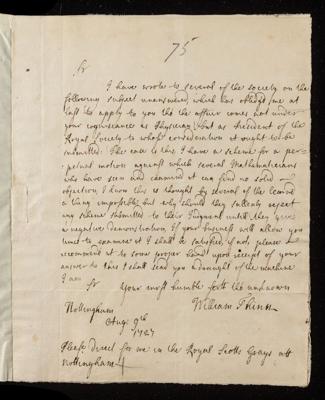 75
Sr
I have wrote to several of the society on the
following subject unanswered, which has obliged me at
last to apply to you tho the affair comes not under
your cognizance as Physician but as President of the
Royal Society to whose consideration it ought to be
submitted. The case is this I have a scheme for a per-
petual motion against which several Mathematicians
who have seen and examined it can find no solid
objection I know this is thought by several of the learned
a thing impossible but why should they sullenly reject
any scheme submitted to their Judgment until they give
a negative demonstration If your business will allow you
time to examine it I shall be satisfied if not please
recommend it to some proper hand upon receipt of your
answer to this I shall send you a draught of the machine
I am
Sr
Your most humble tho unknown
William
Nottingham
Augt 9th
1727
Please direct for me in the Royal Scotts Grays att
Nottingham